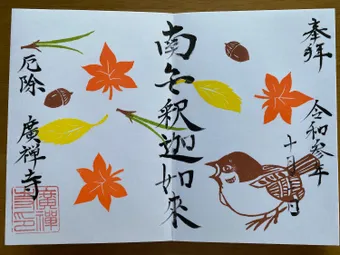 奉拝
令和参年
十月一日
南無釈迦如来
厄除
廣禅寺